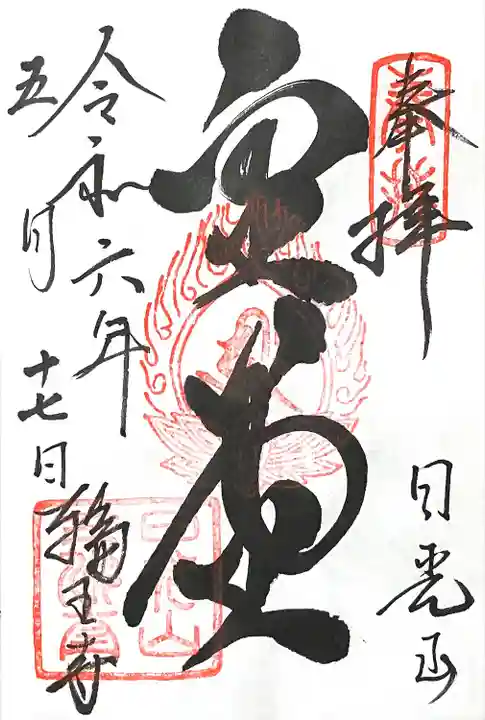 奉拝
日光山
金堂
令和六年
五月
十七日
輪王寺